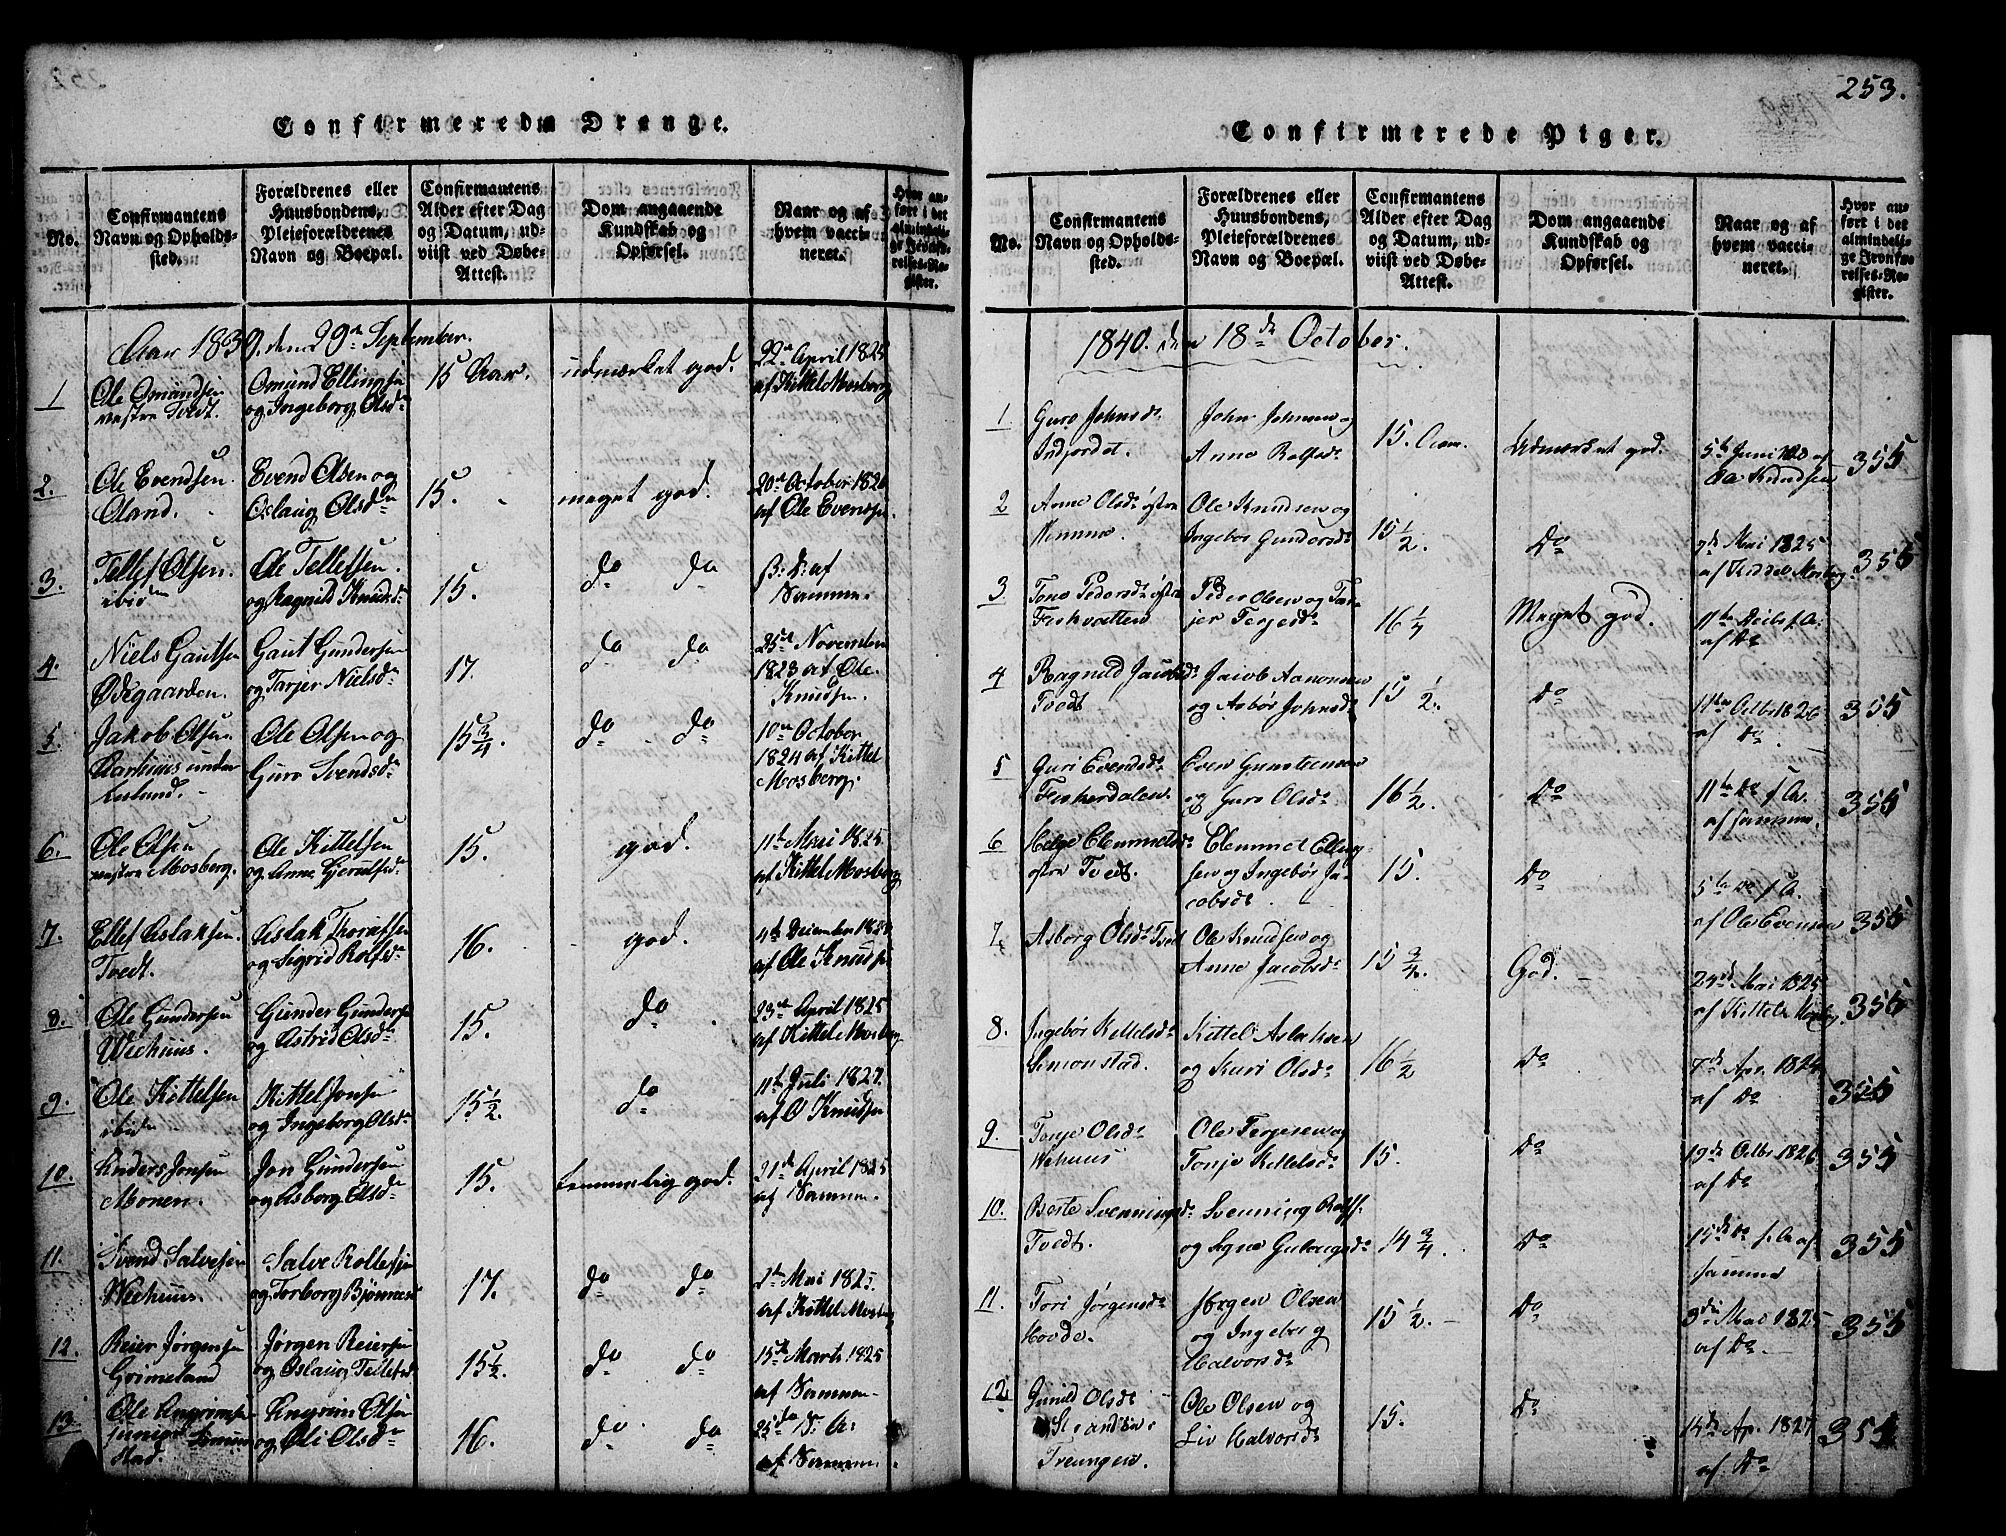 Confirmerede Drenge.
No.
Confirmantens
Navn og Opholds-
sted.
Forældrenes eller
Huusbondens,
Pleieforældrenes
Navn og Boepæl.
Confirmantens
Alder efter Dag
og Datum, ud-
viist ved Døbe-
Attest.
Dom angaaende
Kundskab og
Opførsel.
Naar og af
hvem vacci-
neret.
Hvor an-
ført i det
almindeli-
ge Jevnfø-
relses-Re-
gister.
Aar 1839, den 29de September.
1
Ole Omundsen
vestre Tvedt.
Omund Ellingsen
og Ingeborg Olsdr
15 Aar.
udmærket god.
22de April 1825
af Kittel Mosberg
2.
Ole Evendsen.
Oland.
Evend Olsen og
Oslaug Olsdr
15.
meget god.
20de October 1826
af Ole Evensen.
3.
Tellef Olsen.
ibid
Ole Tellefsen.
og Ragnild Knudsdr
15.
do do
af
Samme.
4.
Niels Gautsen
Ødegaarden.
Gaut Gundersen
og Tarjer Nielsdr
17.
do do
25de November
1823 af Ole
Knudsen.
5.
Jakob Olsen.
Aarhuus under
Ole Olsen og
Guro Svendsdr
15 3/4.
do do
10de October
1824 af Kittel
Mosberg.
6.
Ole Olsen
vestre Mosberg.
Ole Kittelsen
og Anne Gjerulfsdr
15.
god.
11te Mai 1825
af Kittel Mosberg
7.
Ellef Aslaksen.
Tvedt.
Aslak Thorafsen
og Sigrid Rolfsdr
16.
god.
4de December 1824
af Ole Knudsen
8.
Ole Gundersen
Weehuus.
Gunder Gundersen
og Astrid Olsdr
15.
do
23de April 1825
af Kittel Mosberg
9.
Ole Kittelsen
ibid
Kittel Jonsen
og Ingeborg Olsdr
15 1/2.
do
11te Juli 1827.
af O Knudsen
10.
Anders Jonsen
Monen.
Jon Gundersen
og Asborg Olsdr
15.
temmelig god.
21de April 1825
af Samme.
11.
Svend Salvesen
Weehuus.
Salve Rollefsen
og Torborg Bjønnesdr
17.
do do
Mai 1825.
af Kittel Mosberg
12.
Reier Jørgensen
Grimeland
Jørgen Reiersen
og Oslaug Tellefsdr
15 1/2.
do do
15de Marts 1825
af Samme
13.
Ole Angrimsen
Simon-
stad.
Angrim Olsen
og Oli Olsdr
16.
do do
25de
af Samme
253.
Confirmerede Piger.
No.
Confirmantens
Navn og Opholds-
sted.
Forældrenes eller
Huusbondens,
Pleieforældrenes
Navn og Boepæl.
Confirmantens
Alder efter Dag
og Datum, ud-
viist ved Døbe-
Attest.
Dom angaaende
Kundskab og
Opførsel.
Naar og af
hvem vacci-
neret.
Hvor an-
ført i det
almindeli-
ge Jevnfø-
relses-Re-
gister.
1840. den 18de October.
1
Guro Johnsdr
Indfordet.
John Johnsen og
Anne Rolfsdr
15. Aar.
Udmærket god.
5te Juni af
Ole Knudsen
355
2
Anne Olsdr østre
Nemme.
Ole Knudsen og
Ingebor Gundersdr
15 1/2.
Do
7de Mai 1825
af Kiddel Mosberg.
355
3
Tone Pedersdr østre
Fiskvatten
Peder Olsen og Tar-
jer Terjesdr
16 1/4
Meget god.
11te
af Do
4
Ragnild Jacobsdr
Tvedt
Jacob Aanonsen
og Asbør Johnsdr
15 1/2.
Do
11te Octbr 1826
af Do
355
5
Guri Evendsdr
Fiskerdalen.
Even Gunsteensen
og Guro Olsdr
16 1/2.
Do
11te Do
af samme
355
6
Helge Clemmetsdr
østre Tvedt.
Clemmet Elling-
sen og Ingebør Ja-
cobsdr
15.
Do
5te Do
af Ole Evensen
355
7.
Asborg Olsdr Tvedt
Ole Knudsen og
Anne Jacobsdr
15 3/4.
God.
24de Mai 1825
af Kittel Mosberg.
355
8.
Ingebør Kittelsdr
Simonstad.
Kittel Aslaksen
og Kari Olsdr
16 1/2
Do
7de Apr. 1824
af Do
355
9.
Tonje Olsdr
Wehuus
Ole Terjesen og
Tonje Kittelsdr
15.
Do
19de Octbr 1826
af Do
355
10.
Berte Svenningsdr
Tvedt.
Svenning Rolfs.
og Signe Gulaugsdr
14 3/4.
Do
15de Do af
samme
355
11.
Tori Jørgensdr
Hovde.
Jørgen Olsen
og Ingeborg
Halvorsdr
15 1/2.
Do
3die Mai 1825
af Do
355
12.
Gunild Olsdr
Treungen.
Ole Olsen og
Liv Halvorsdr
15.
Do
14de Ap. 1827
af Do
355